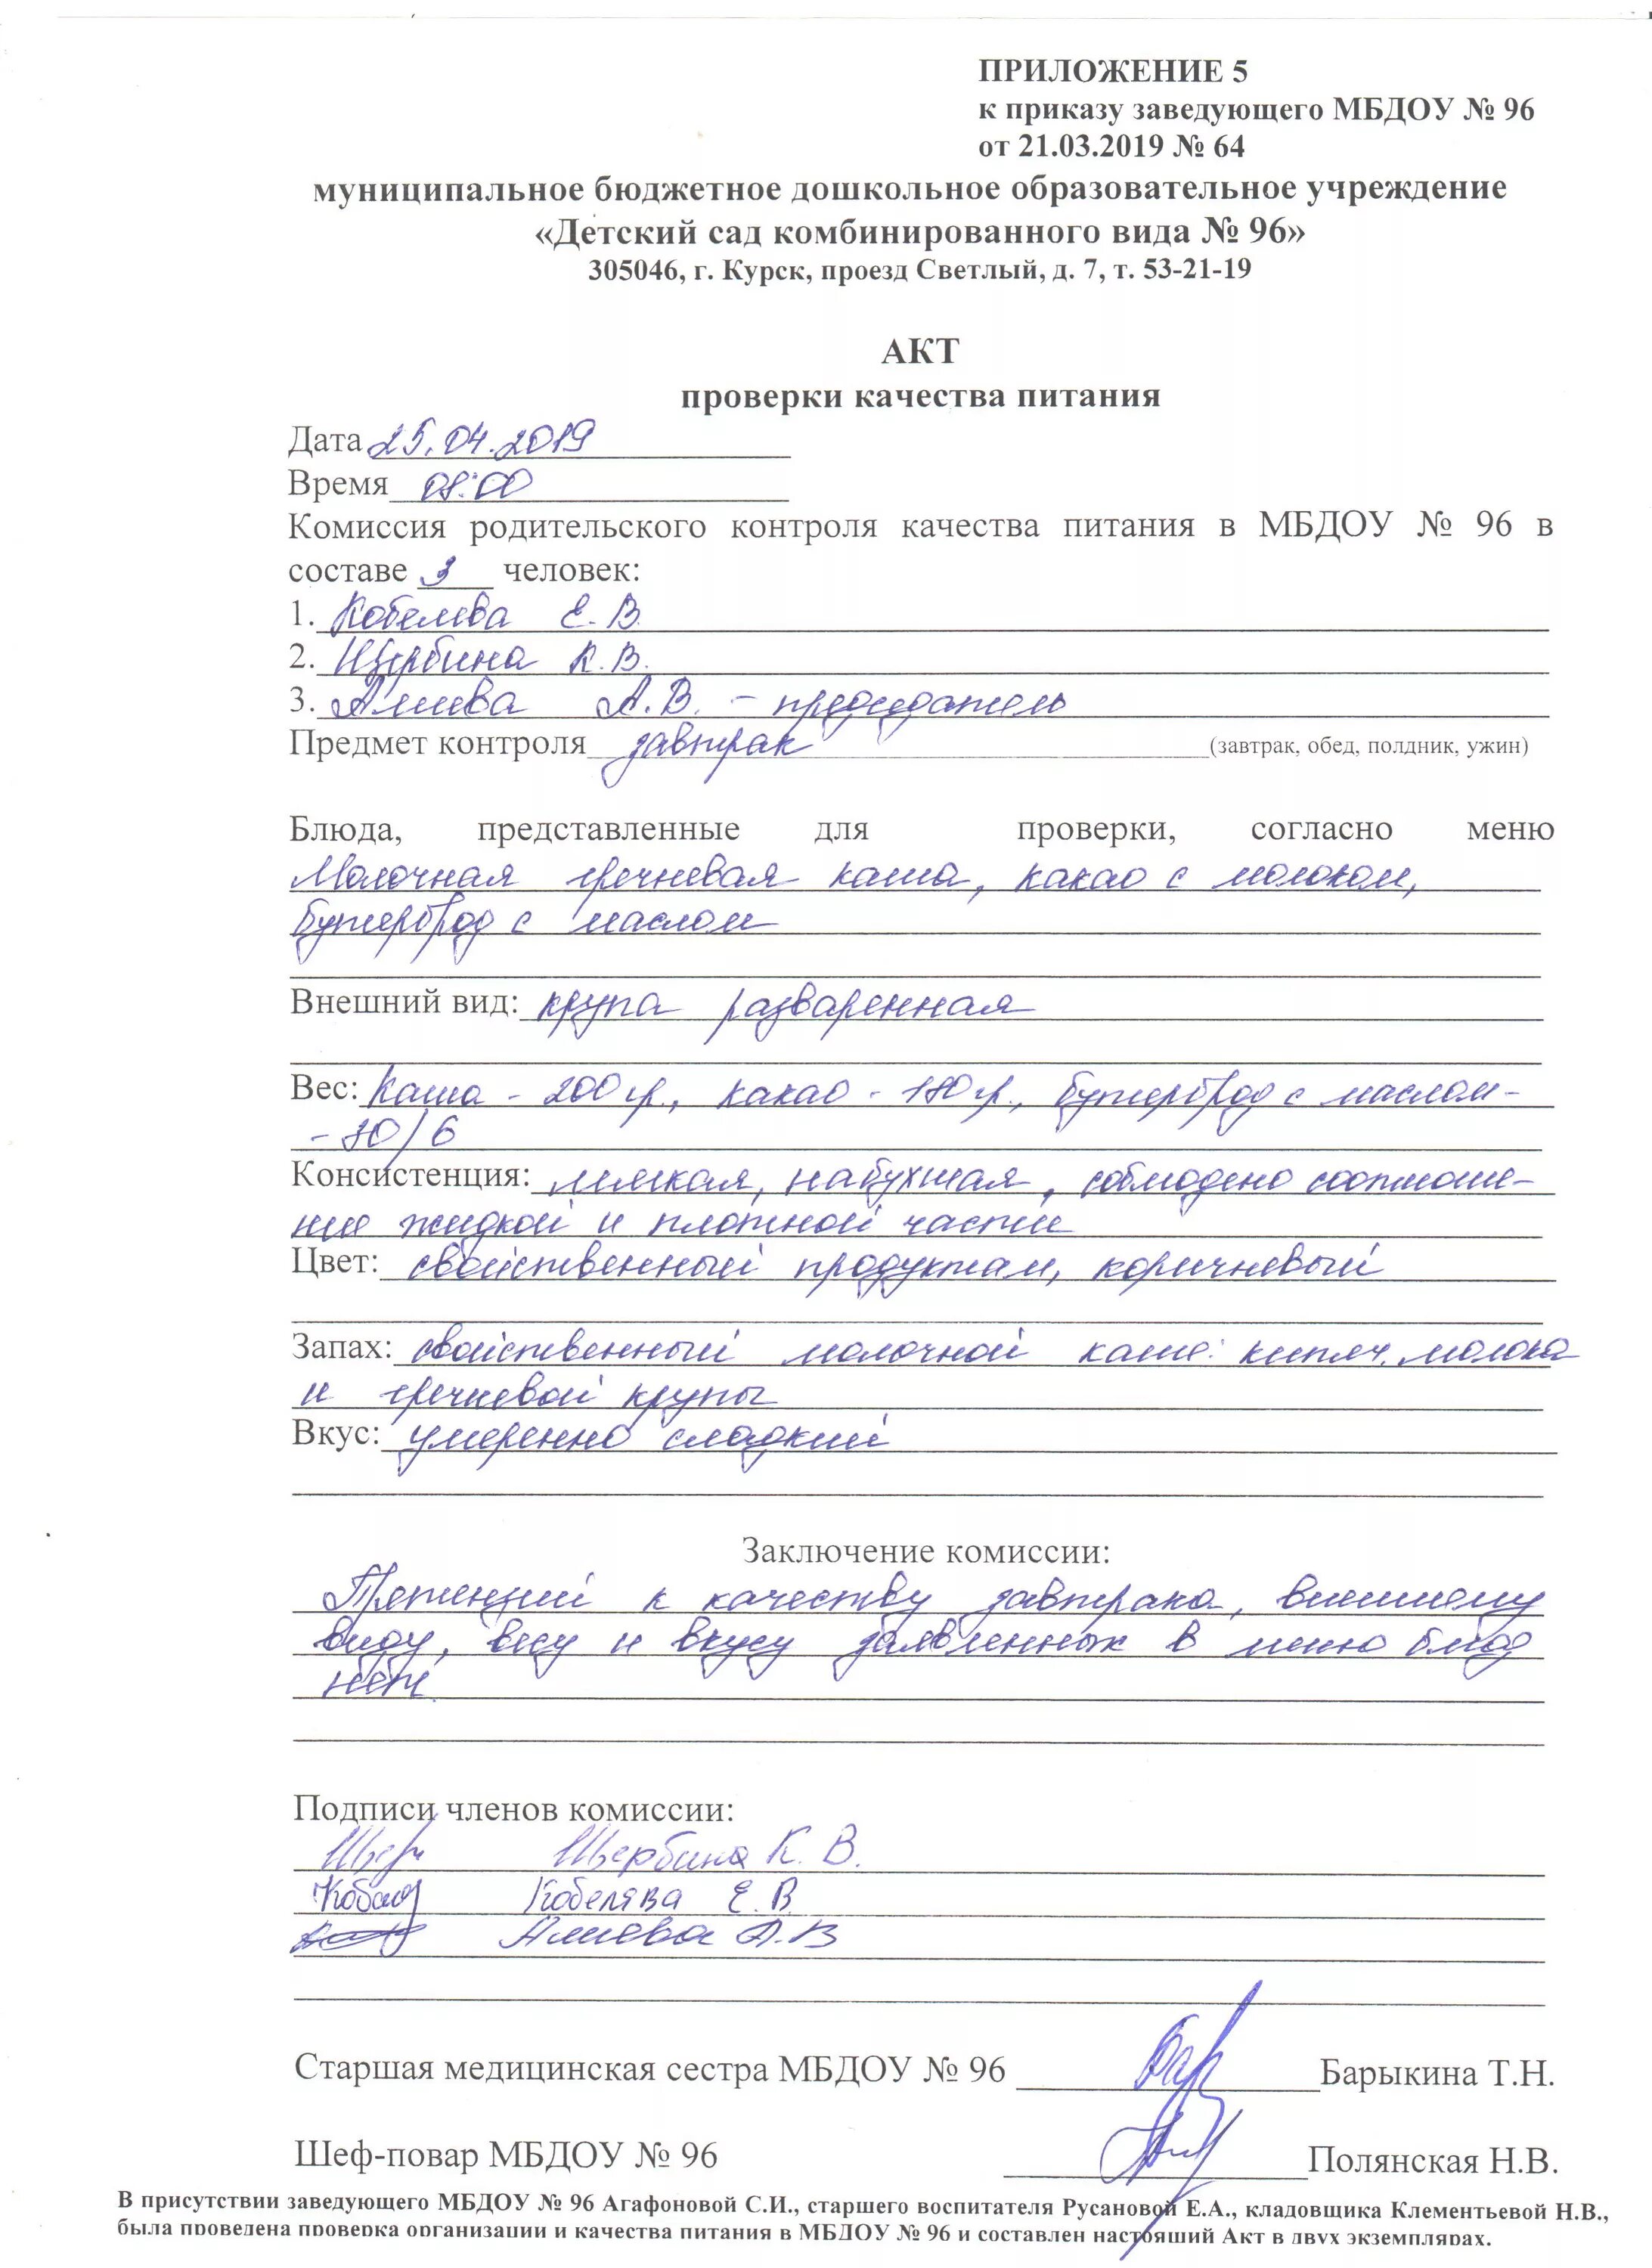 ПРИЛОЖЕНИЕ 5
к приказу заведующего МБДОУ № 96
от 21.03.2019 № 64
муниципальное бюджетное дошкольное образовательное учреждение
«Детский сад комбинированного вида № 96»
305046, г. Курск, проезд Светлый, д. 7, т. 53-21-19
АКТ
проверки качества питания
Дата 25.04.2019
Время 08:00
Комиссия родительского контроля качества питания в МБДОУ № 96 в
составе 3 человек:
1. Кобелева Е.В.
2. Щербина К.В.
3. Алиева А.В. – председатель
Предмет контроля завтрак (завтрак, обед, полдник, ужин)
Блюда, представленные для проверки, согласно меню
Молочная гречневая каша, какао с молоком,
бутерброд с маслом
Внешний вид: крупа разваренная
Вес: Каша - 200 гр., какао - 180 гр., бутерброд с маслом -
- 30/6
Консистенция: мягкая, набухшая, соблюдено соотноше-
ние жидкой и плотной части
Цвет: свойственный продуктам, коричневый
Запах: свойственный молочной каше: кипяч. молока
и гречневой крупы
Вкус: умеренно сладкий
Заключение комиссии:
Претензий к качеству завтрака, внешнему
виду, весу и вкусу заявленных в меню блюд
нет.
Подписи членов комиссии:
Щербина К. В.
Кобелева Е. В.
Алиева А.В
Старшая медицинская сестра МБДОУ № 96 Барыкина Т.Н.
Шеф-повар МБДОУ № 96 Полянская Н.В.
В присутствии заведующего МБДОУ № 96 Агафоновой С.И., старшего воспитателя Русановой Е.А., кладовщика Клементьевой Н.В.,
была проведена проверка организации и качества питания в МБДОУ № 96 и составлен настоящий Акт в двух экземплярах.